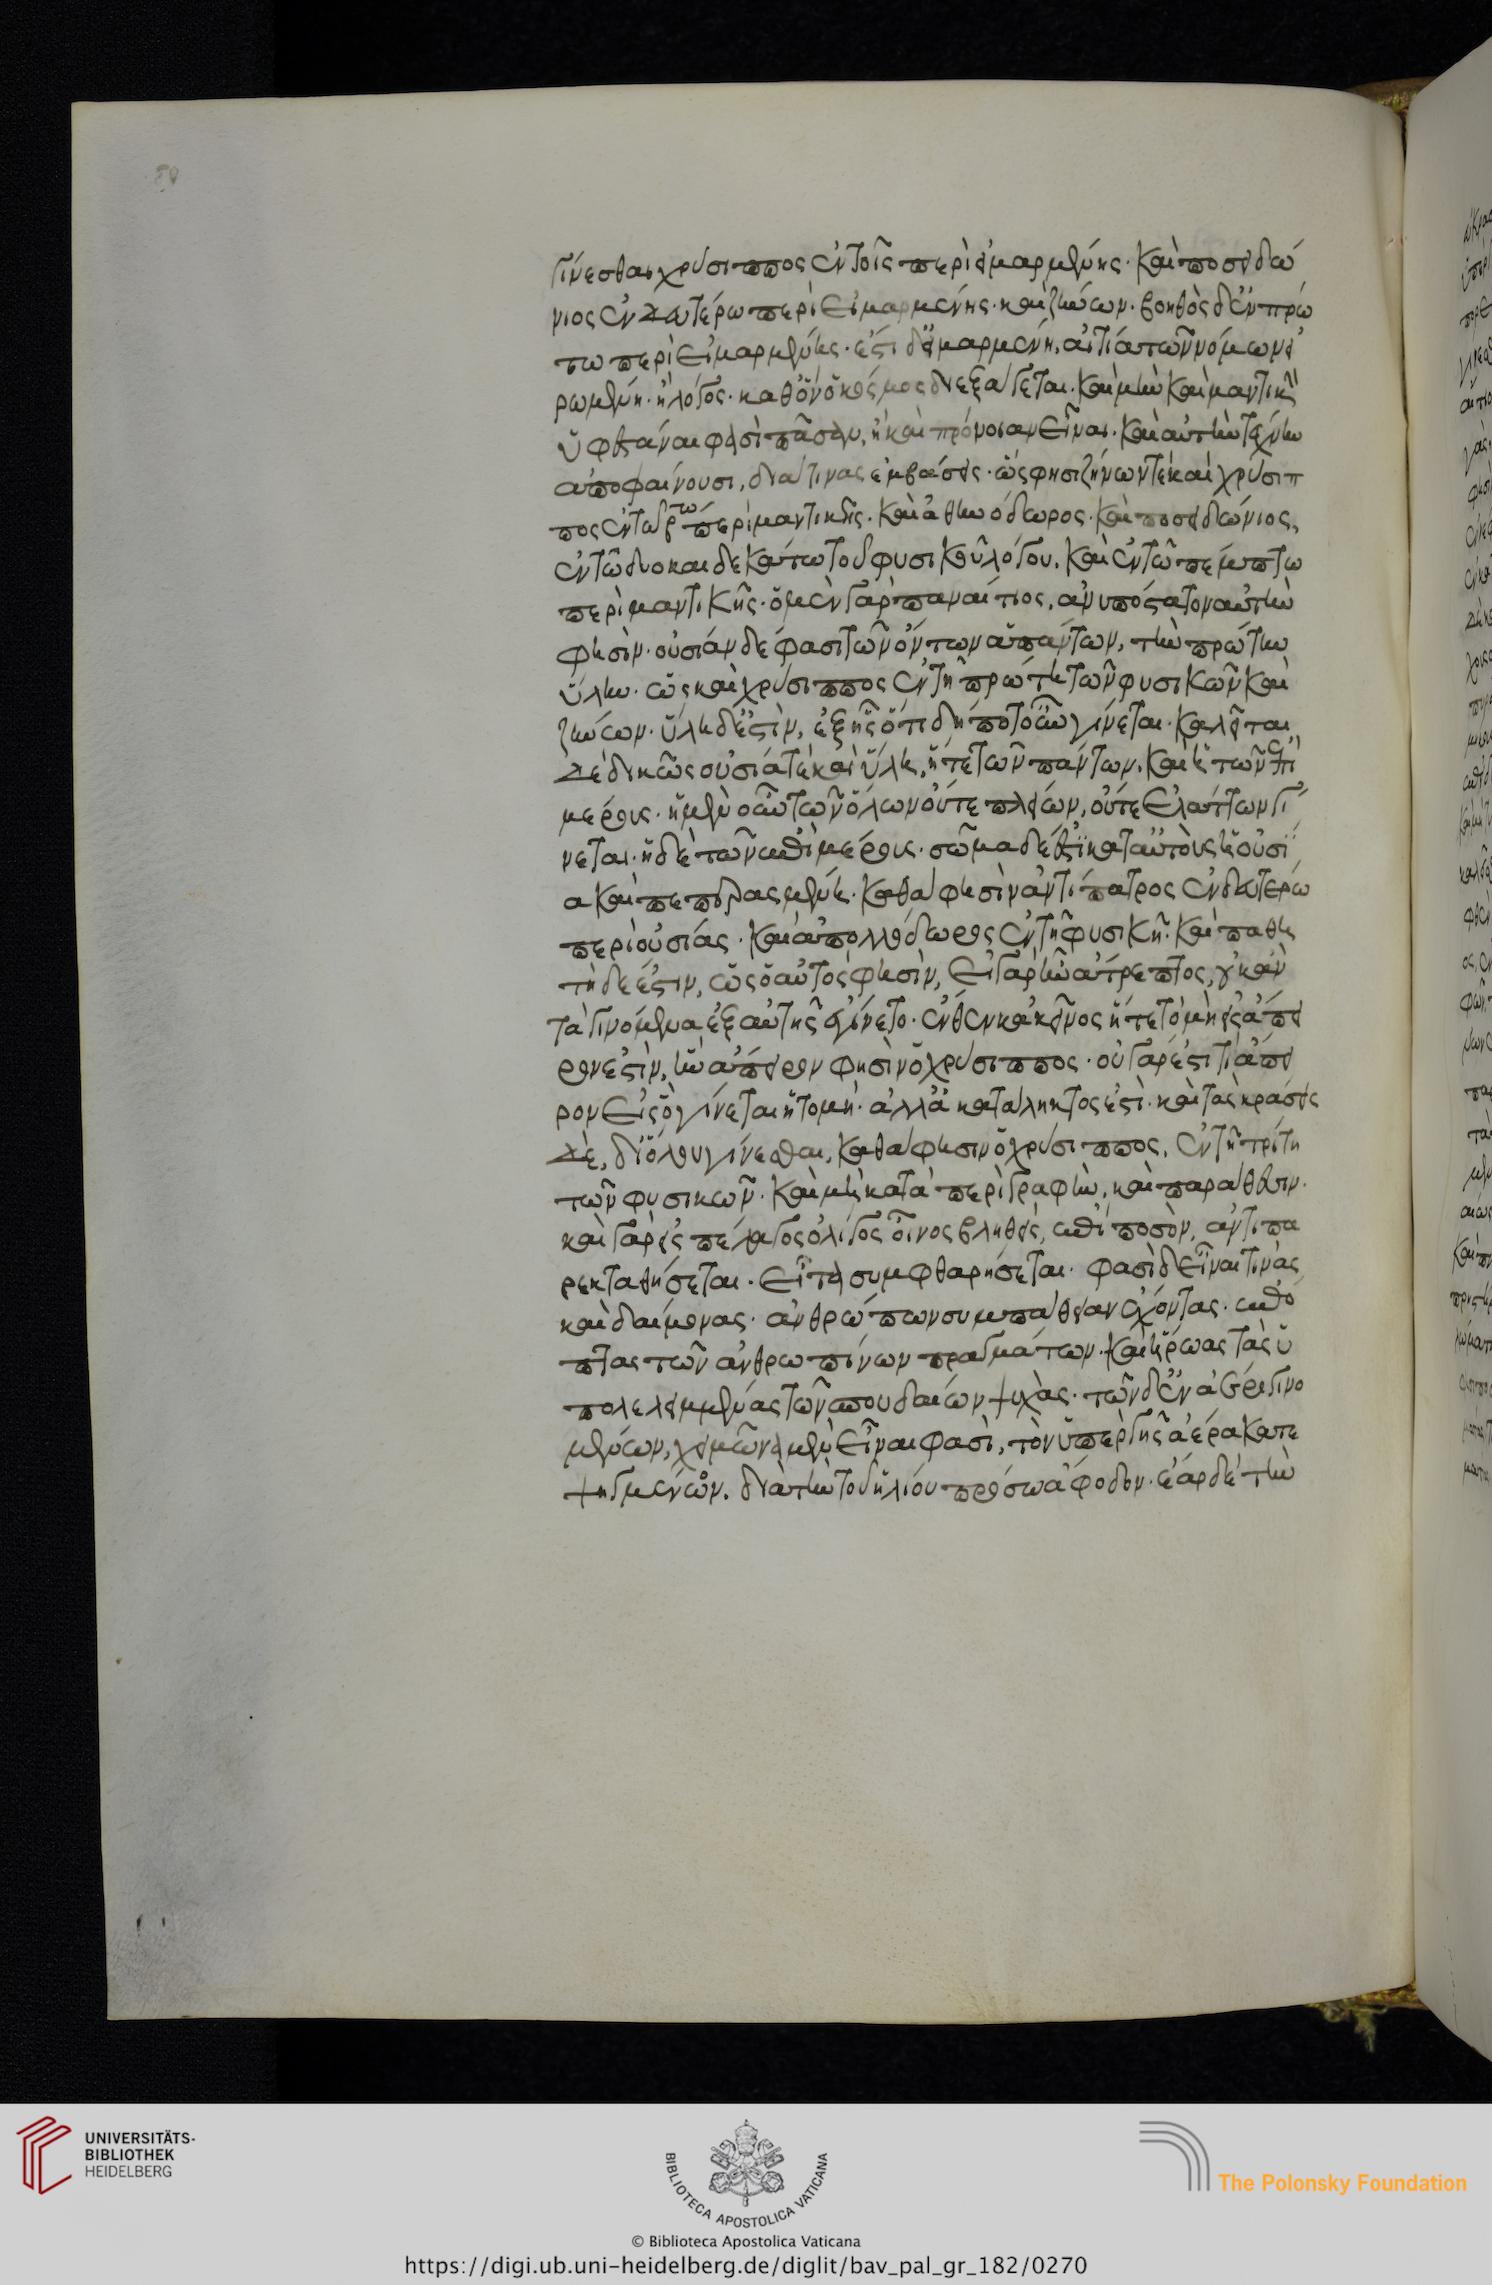 γίνεσθαι χρύσιππος ἐν τοῖς περὶ εἱμαρμένης. καὶ ποσειδώ
νιος ἐν δευτέρω περὶ εἱμαρμένης. καὶ ζήνων. βοηθὸς δ' ἐν πρώ
τω περὶ εἱμαρμένης. ἐστὶ δ' εἱμαρμένη, αἰτία τῶν νόμων εἰ
ρωμένη. ἢ λόγος. καθ' ὃν ὁ κόσμος διεξάγεται. καὶ μὴν καὶ μαντικὴ
ὑφεστάναι φασὶ πᾶσαν, ἢ καὶ πρόνοιαν εἶναι. καὶ αὐτὴν τέχνην
ἀποφαίνουσι, διά τινας ἐμβάσεις. ὥς φησι ζήνων τὲ καὶ χρύσιπ
πος ἐν τῶ δευτέρω περὶ μαντικῆς. καὶ ἀθηνόδωρος. καὶ ποσειδώνιος,
ἐν τῶ δυοκαιδεκάτω τοῦ φυσικοῦ λόγου. καὶ ἐν τῶ πέμπτω
περὶ μαντικῆς. ὁ μὲν γὰρ παναίτιος, ἀνυπόστατον αὐτὴν
φησὶν. οὐσίαν δέ φασι τῶν ὄντων ἁπάντων, τὴν πρώτην
ὕλην. ὡς καὶ χρύσιππος ἐν τῇ πρώτη τῶν φυσικῶν καὶ
ζήνων. ὕλη δέ ἐστὶν, ἐξ ἧς ὅτι δήποτοῦν γίνεται. καλεῖται
δὲ διχῶς οὐσία τὲ καὶ ὕλη, ἥ τε τῶν πάντων. καὶ ἡ τῶν ἐπὶ
μέρους. ἡ μὲν οὖν τῶν ὅλων οὔτε πλείων, οὔτε ἐλάττων γί
νεται. ἡ δὲ τῶν ἐπὶ μέρους. σῶμα δέ ἐστι κατ' αὐτοὺς ἡ οὐσί
α καὶ πεπερασμένη. καθά φησὶν ἀντίπατρος ἐν δευτέρω
περὶ οὐσίας. καὶ ἀπολλόδωρος ἐν τῇ φυσικῇ. καὶ παθη
τὴ δέ ἐστιν, ὡς ὁ αὐτός φησὶν, εἰ γὰρ ἦν ἄτρεπτος, οὐκ ἂν
τὰ γινόμενα ἐξ αὐτῆς ἐγίνετο. ἔνθεν κἀκεῖνος ἥ τε τομὴ εἰς ἄπει
ρον ἐστὶν, ἣν ἄπειρον φησὶν ὁ χρύσιππος. οὐ γάρ ἐστί τι ἄπει
ρον εἰς ὃ γίνεται ἡ τομή. ἀλλ' ἀκατάληκτος ἐστί. καὶ τὰς κράσεις
δὲ, δι' ὅλου γίνεσθαι, καθά φησιν ὁ χρύσιππος, ἐν τῇ τρίτη
τῶν φυσικῶν. καὶ μὴ κατὰ περιγραφὴν, καὶ παράθεσιν.
καὶ γὰρ εἰς πέλαγος ὀλίγος οἶνος βληθεὶς, ἐπὶ ποσὸν, ἀντιπα
ρεκταθήσεται. εἶτα συμφθαρήσεται. φασὶ δ' εἶναι τινὰς
καὶ δαίμονας. ἀνθρώπων συμπάθειαν ἔχοντας. ἐπό
πτας τῶν ἀνθρωπίνων πραγμάτων. καὶ ἥρωας τὰς ὑ
πολελειμμένας τῶν σπουδαίων ψυχὰς. τῶν δ' ἐν ἀέρι γινο
μένων, χειμῶνα μὲν εἶναι φασὶ, τὸν ὑπὲρ γῆς ἀέρα κατε
ψυγμένον. διὰ τὴν τοῦ ἡλίου πρόσω ἄφοδον. ἔαρ δὲ τὴν
UNIVERSITÄTS-
BIBLIOTHEK
HEIDELBERG
BIBLIOTECA APOSTOLICA VATICANA
© Biblioteca Apostolica Vaticana
The Polonsky Foundation
https://digi.ub.uni-heidelberg.de/diglit/bav_pal_gr_182/0270